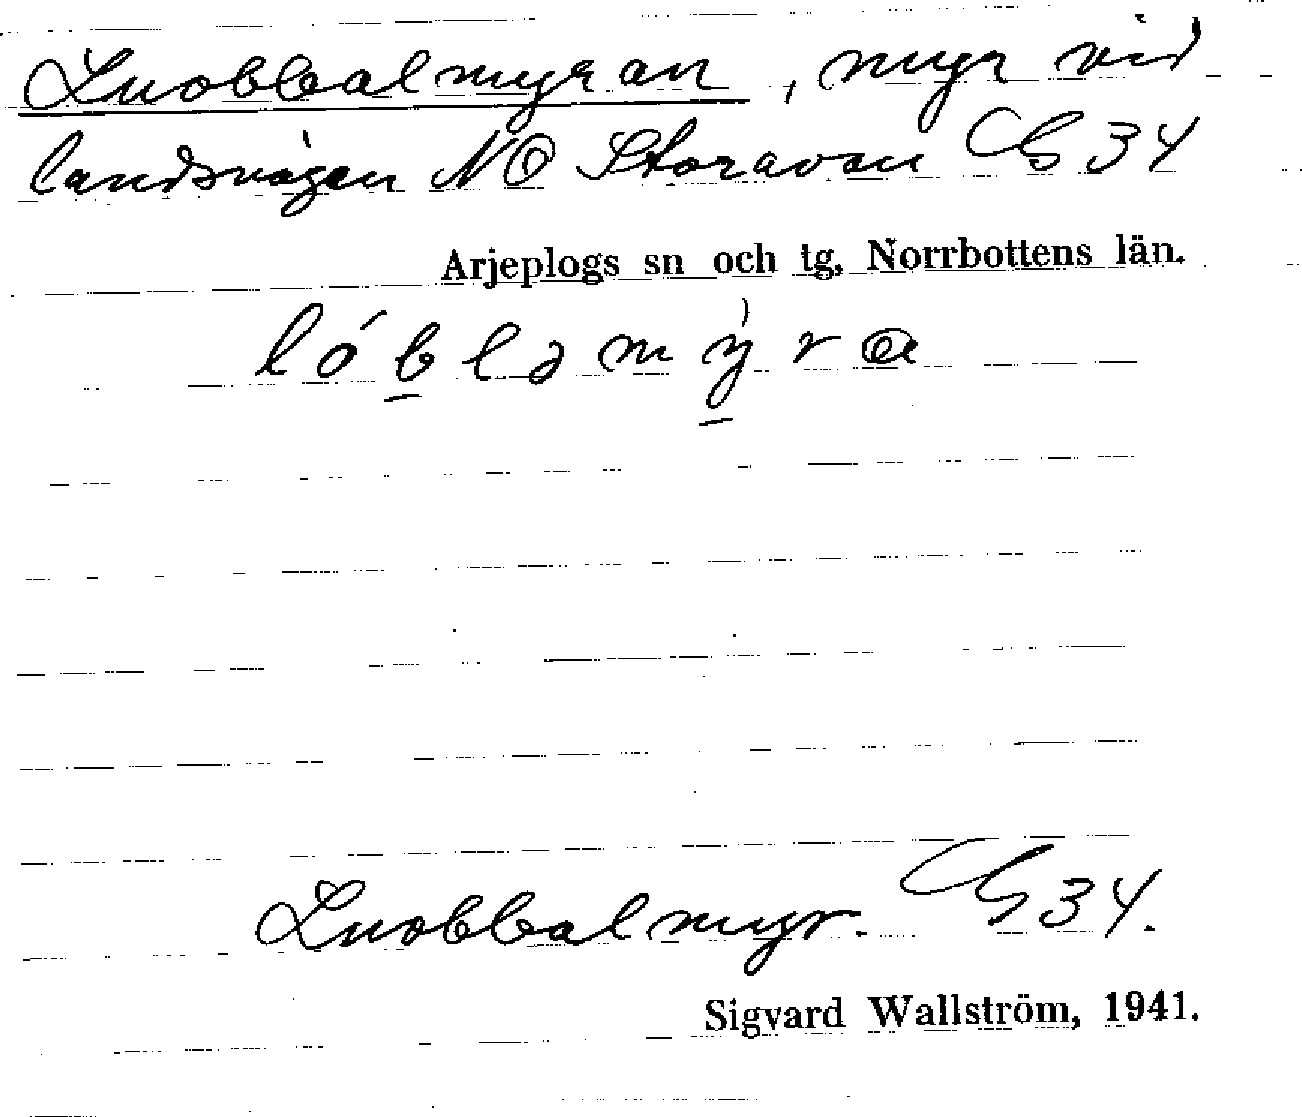 Luobbalmyran, myr vid
landsvägen NO Storavan G 34
Arjeplogs sn och tg, Norrbottens län.
lób̲ləmỳ̲ra
Luobbalmyr. G 34.
Sigvard Wallström, 1941.